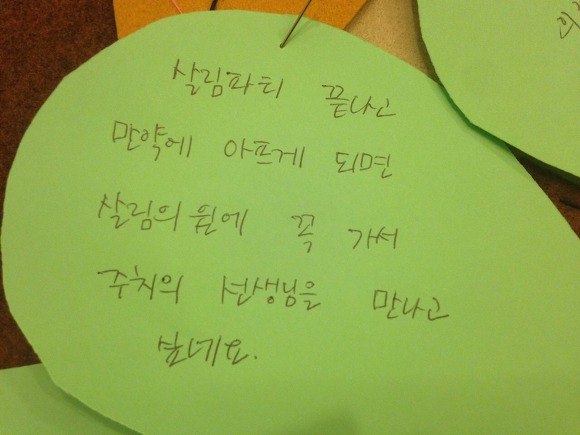 살림파티 끝나고
만약에 아프게 되면
살림의원에 꼭 가서
주치의 선생님을 만나고
싶네요.